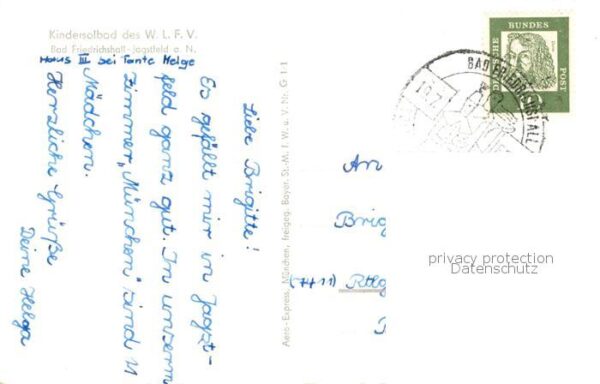 Kindersolbad des W. L. F. V.
Bad Friedrichshall-Jagstfeld a. N.
Haus III bei Tante Helge
Liebe Brigitte!
Es gefällt mir in Jagst-
feld ganz gut. In unserm
Zimmer „München" sind 11
Mädchen.
Herzliche Grüße
Deine Helga
Aero-Express, München, freigeg. Bayer. St. M. f. W. u. V. Nr. G 1/1
DEUTSCHE
BUNDES
POST
BAD FRIEDRICHSHALL
An
Brig
(7411) Rtlg
privacy protection
Datenschutz